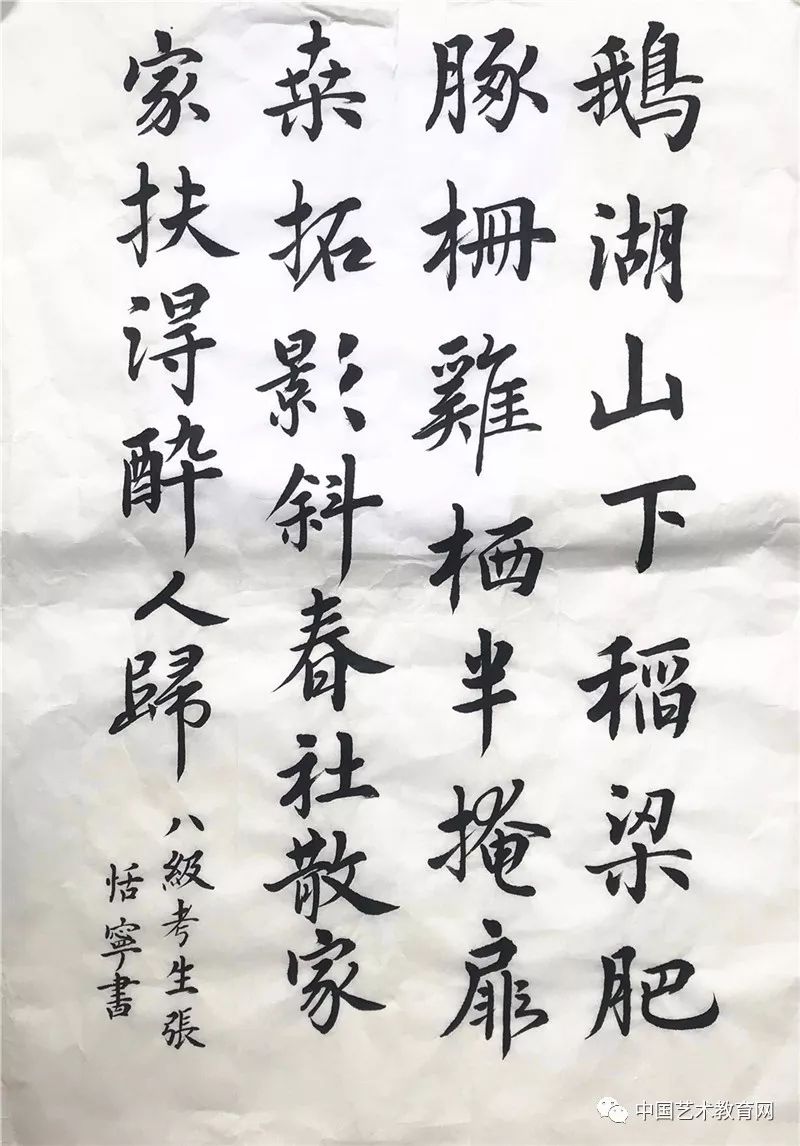 鵝湖山下稻梁肥
豚柵雞栖半掩扉
桒拓影斜春社散家
家扶得醉人歸
八級考生張
恬寧書
中国艺术教育网